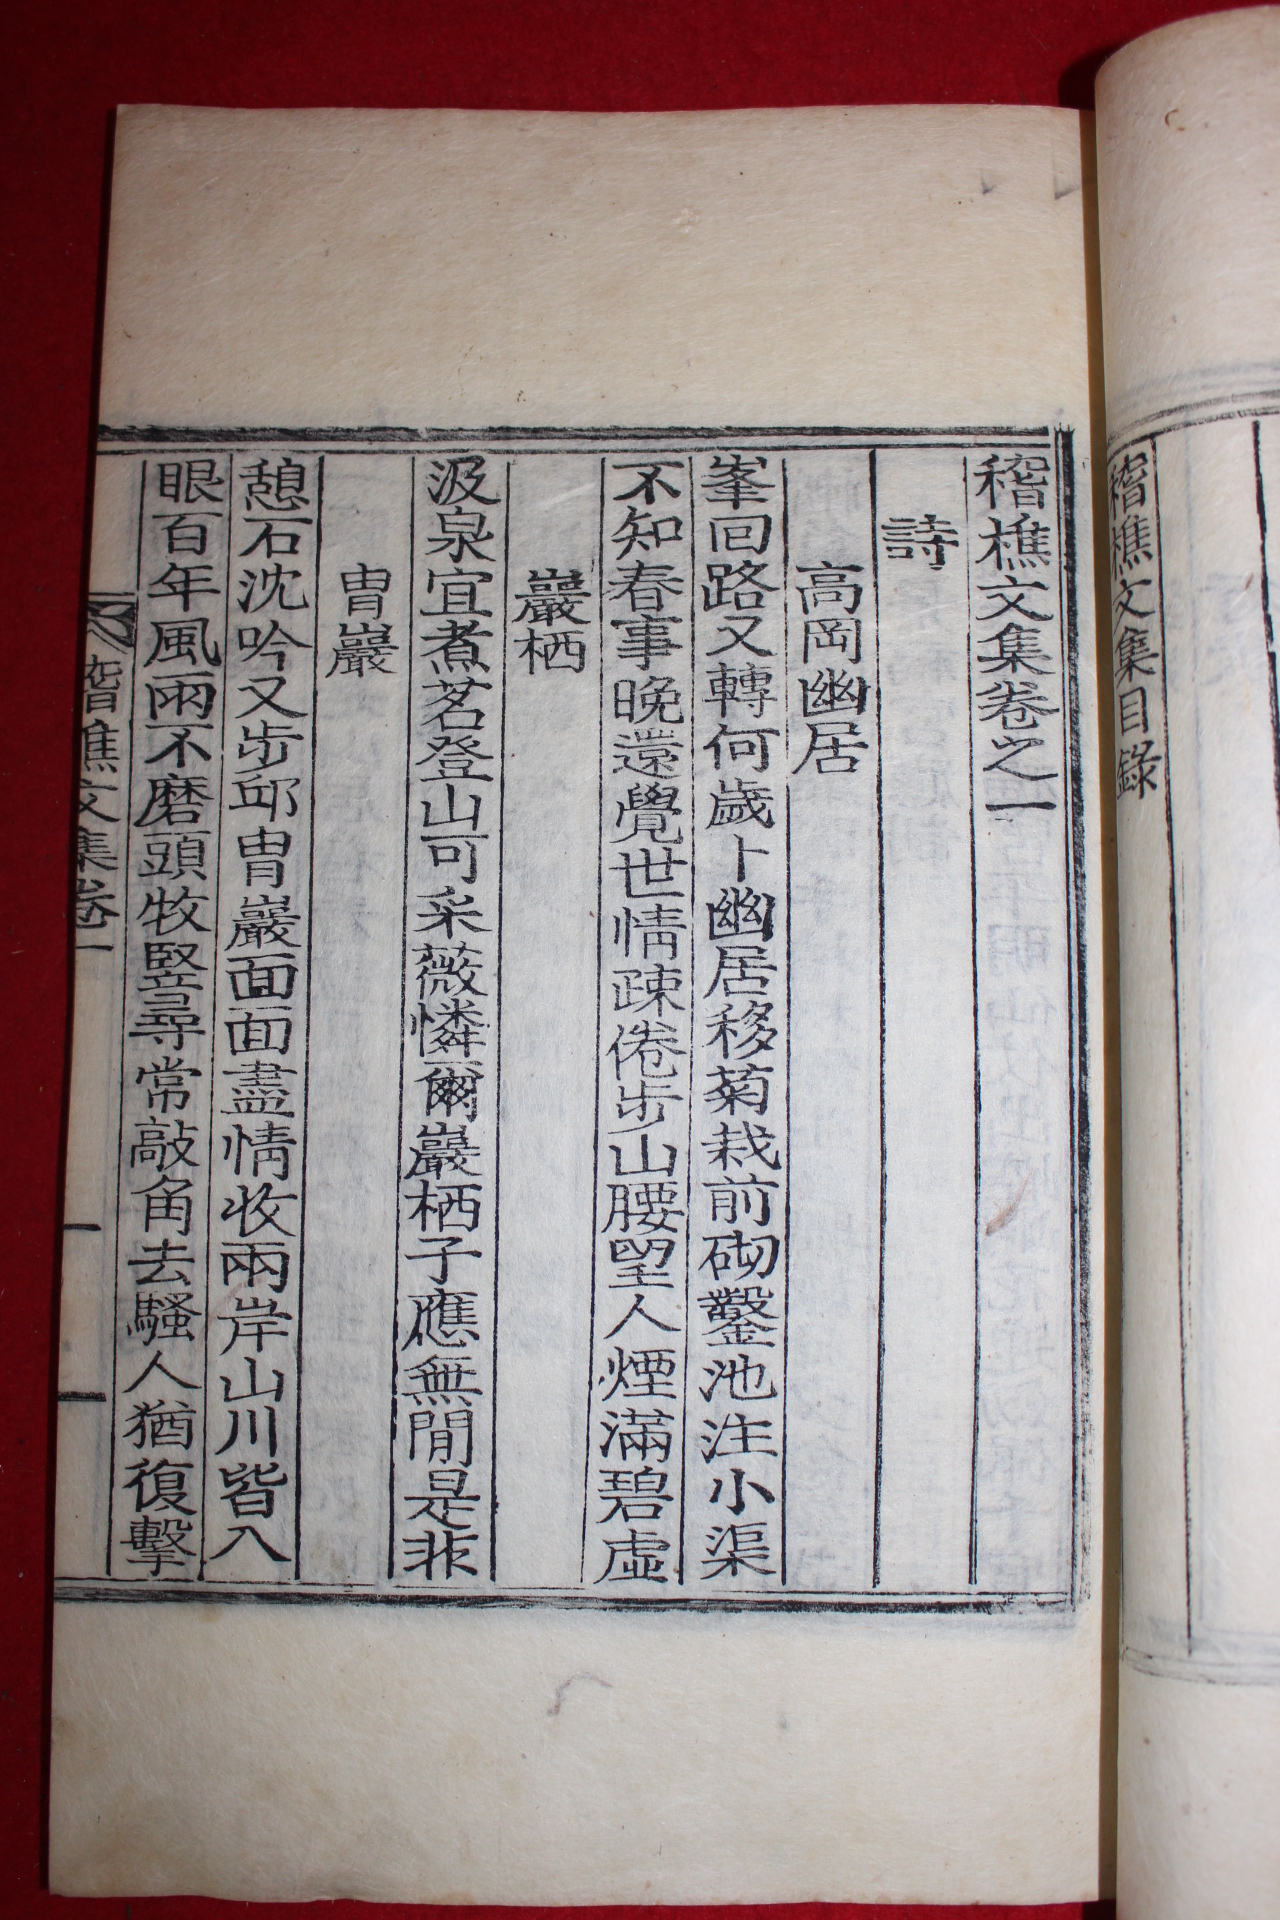 稽樵文集目錄
稽樵文集卷之一
詩
高岡幽居
峯回路又轉何歲卜幽居移菊栽前砌鑿池注小渠
不知春事晚還覺世情疎倦步山腰望人煙滿碧虛
巖栖
汲泉宜煮茗登山可采薇憐爾巖栖子應無閒是非
冑巖
憩石沈吟又步邱冑巖面面盡情收兩岸山川皆入
眼百年風雨不磨頭牧豎尋常敲角去騷人猶復擊
稽樵文集卷一
一